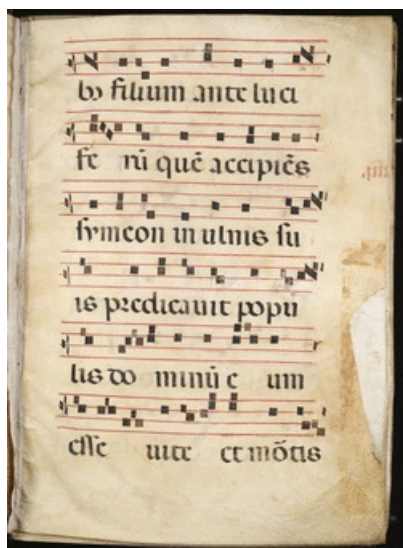 bo filium ante luci
fe rū quē accipiēs
symeon in ulnis su
is predicauit popu
lis do minū e um
esse uite et mōtis